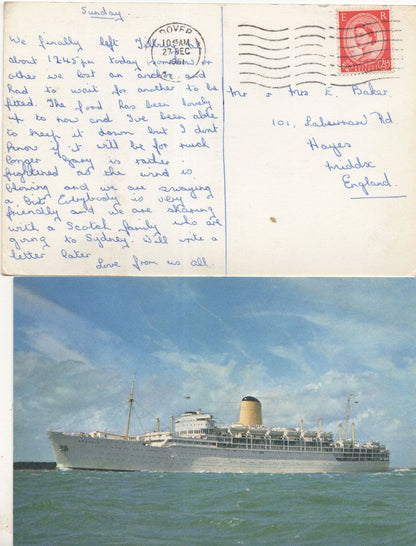 Sunday.
We finally left Tilbury
about 12.45 pm today
other we lost an anchor and
had to wait for another to be
fitted. The food has been lovely
up to now and I've been able
to keep it down but I dont
know if it will be for much
longer. Gary is rather
frightened as the wind is
blowing and we are swaying
a bit. Everybody is very
friendly and we are sharing
with a Scotch family who are
going to Sydney. Will write a
letter later
Love from us all.
DOVER
10 45 AM
27 DEC
1961
E R
Mr & Mrs E Baker.
101, Rd
Hayes
Middx
England.